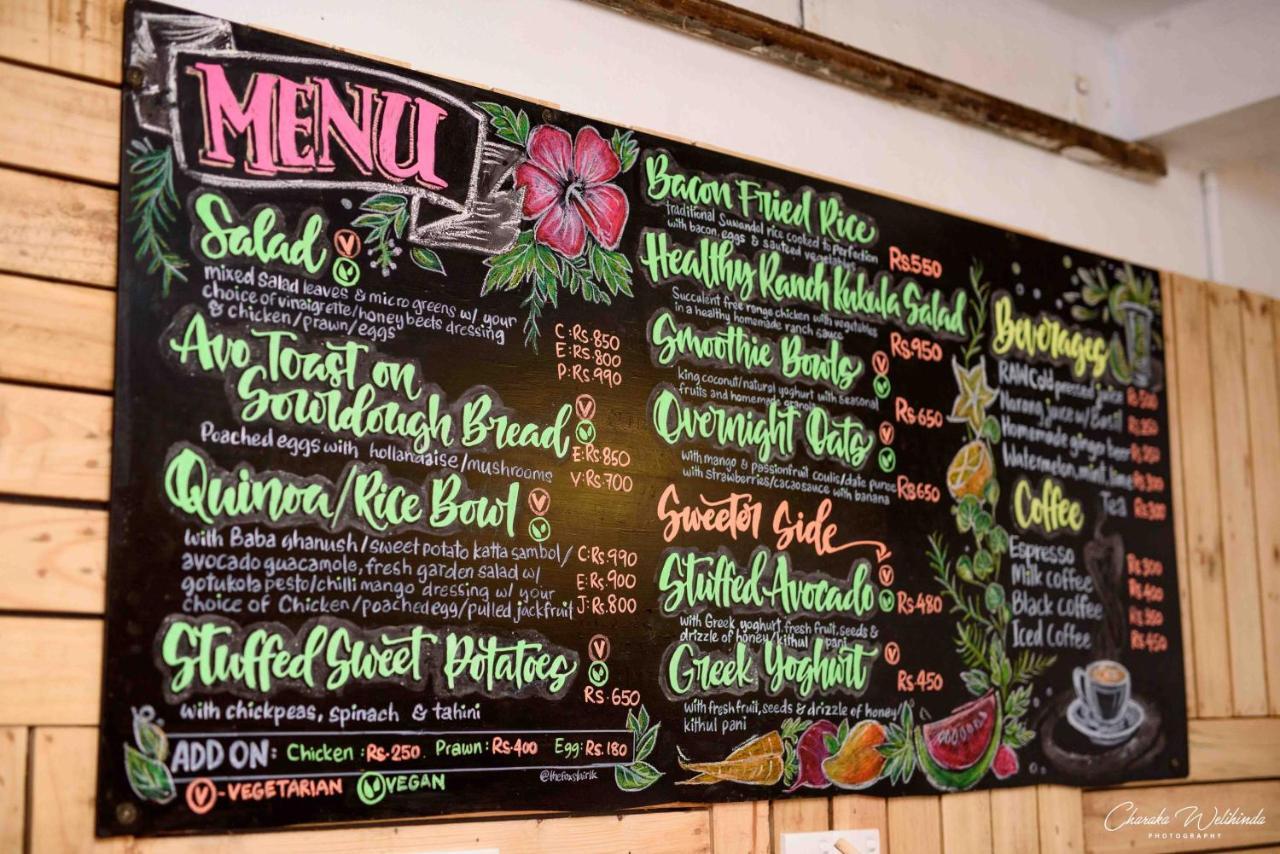 MENU
Salad V V
mixed salad leaves & micro greens w/ your
choice of vinaigrette/honey beets dressing
& chicken/prawn/eggs
C:Rs.850
E:Rs.800
P:Rs.990
Avo Toast on
Sourdough Bread V V
Poached eggs with hollandaise/mushrooms
E:Rs.850
V:Rs.700
Quinoa/Rice Bowl V V
with Baba ghanush/sweet potato katta sambol/
avocado guacamole, fresh garden salad w/
gotukola pesto/chilli mango dressing w/ your
choice of Chicken/poached egg/pulled jackfruit
C:Rs.990
E:Rs.900
J:Rs.800
Stuffed Sweet Potatoes V V
Rs.650
with chickpeas, spinach & tahini
ADD ON: Chicken :Rs.250. Prawn:Rs.400 Egg:Rs.180
V-VEGETARIAN VVEGAN
Bacon Fried Rice
traditional Suwandel rice cooked to perfection
with bacon, eggs & sauteed vegetables
Rs.550
Healthy Ranch Kukula Salad
Succulent free range chicken with vegetables
in a healthy homemade ranch sauce
Rs.950
Smoothie Bowls V V
king coconut/natural yoghurt with seasonal
fruits and homemade granola
Rs.650
Overnight Oats V V
with mango & passionfruit coulis/date puree
with strawberries/cacao sauce with banana
Rs650
Sweeter Side
Stuffed Avocado V V
Rs.480
with Greek yoghurt, fresh fruit, seeds &
drizzle of honey/kithul pani
Greek Yoghurt V
Rs.450
with fresh fruit, seeds & drizzle of honey/
kithul pani
Beverages
RAW Cold pressed juice Rs.500
Narang juice w/ Basil Rs.250
Homemade ginger beer Rs.250
Watermelon, mint, lime Rs.300
Tea Rs.300
Coffee
Espresso Rs.300
Milk coffee Rs.400
Black coffee Rs.350
Iced Coffee Rs.450
Charaka Welihinda
PHOTOGRAPHY